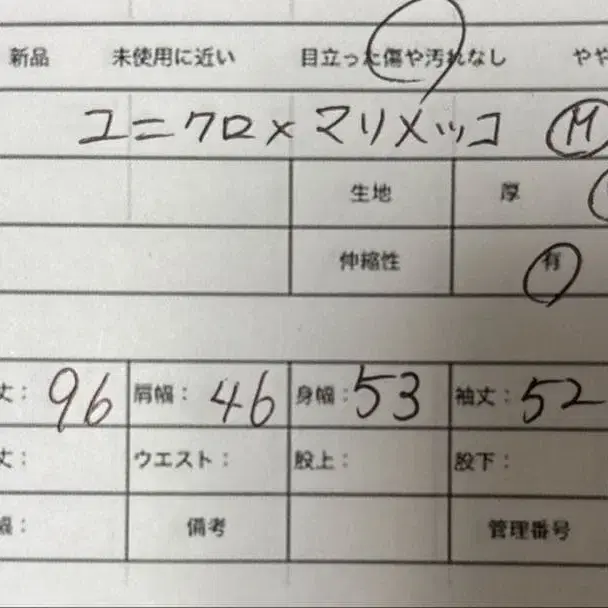 新品 未使用に近い 目立った傷や汚れなし やや
ユニクロ×マリメッコ M
生地 厚
伸縮性 有
丈: 96 肩幅: 46 身幅: 53 袖丈: 52
丈: ウエスト: 股上: 股下:
幅: 備考 管理番号